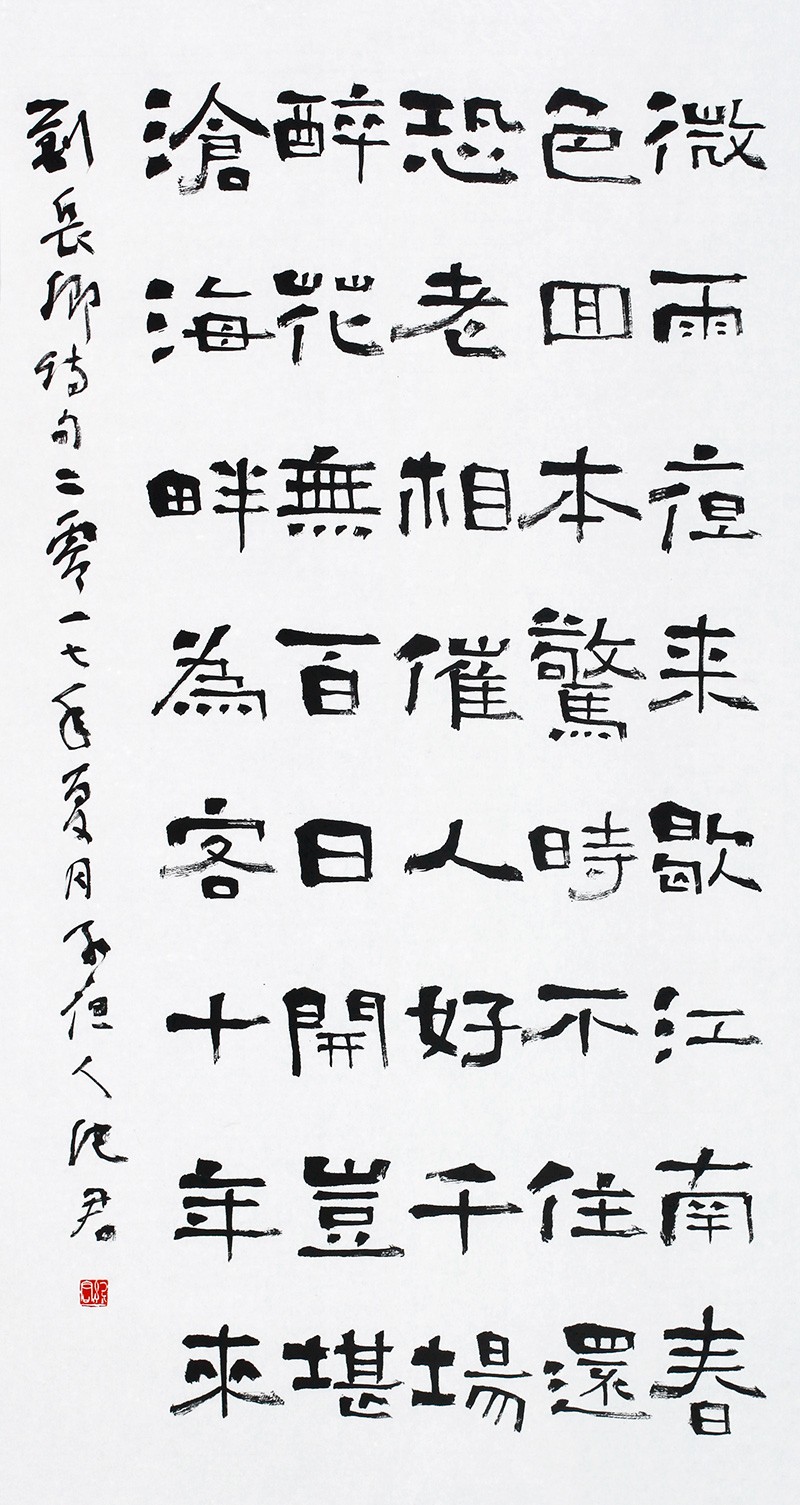 微雨夜来歇江南春
色回本驚時不住還
恐老相催人好千場
醉花無百日開豈堪
滄海畔為客十年來
劉長卿詩句二零一七年夏月夜人君